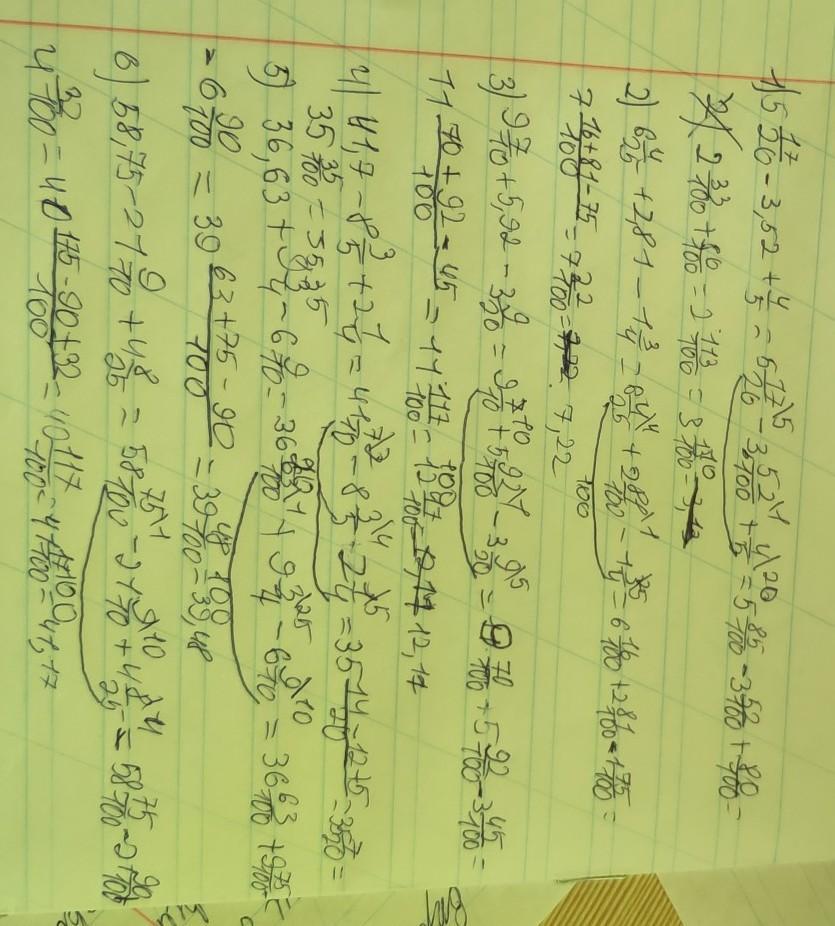 1) 5 17/20 - 3,52 + 4/5 = 5 17/20\5 - 3 52/100\1 + 4/5\20 = 5 85/100 - 3 52/100 + 80/100 =
2 33/100 + 80/100 = 2 113/100 = 3 13/100 =
2) 6 4/25 + 2,81 - 1 3/4 = 6 4/25\4 + 2 81/100\1 - 1 3/4\25 = 6 16/100 + 2 81/100 - 1 75/100 =
7 16+81-75/100 = 7 22/100 = 7,22
100
3) 9 7/10 + 5,92 - 3 9/20 = 9 7/10\10 + 5 92/100\1 - 3 9/20\5 = 9 70/100 + 5 92/100 - 3 45/100 =
11 70+92-45/100 = 11 117/100 = 12 17/100 = 12,17
100
4) 41,7 - 8 3/5 + 2 1/4 = 41 7/10\2 - 8 3/5\4 + 2 1/4\5 = 35 14-12+5/20 = 35 7/20 =
35 35/100 = 35,35
5) 36,63 + 9 3/4 - 6 9/10 = 36 63/100\1 + 9 3/4\25 - 6 9/10\10 = 36 63/100 + 9 75/100 -
= 6 90/100 = 39 63+75-90/100 = 39 48/100 = 39,48
100
6) 58,75 - 21 9/10 + 4 8/25 = 58 75/100\1 - 21 9/10\10 + 4 8/25\4 = 58 75/100 - 21 90/100
4 32/100 = 40 175-90+32/100 = 40 117/100 = 41 17/100 = 41,17
100